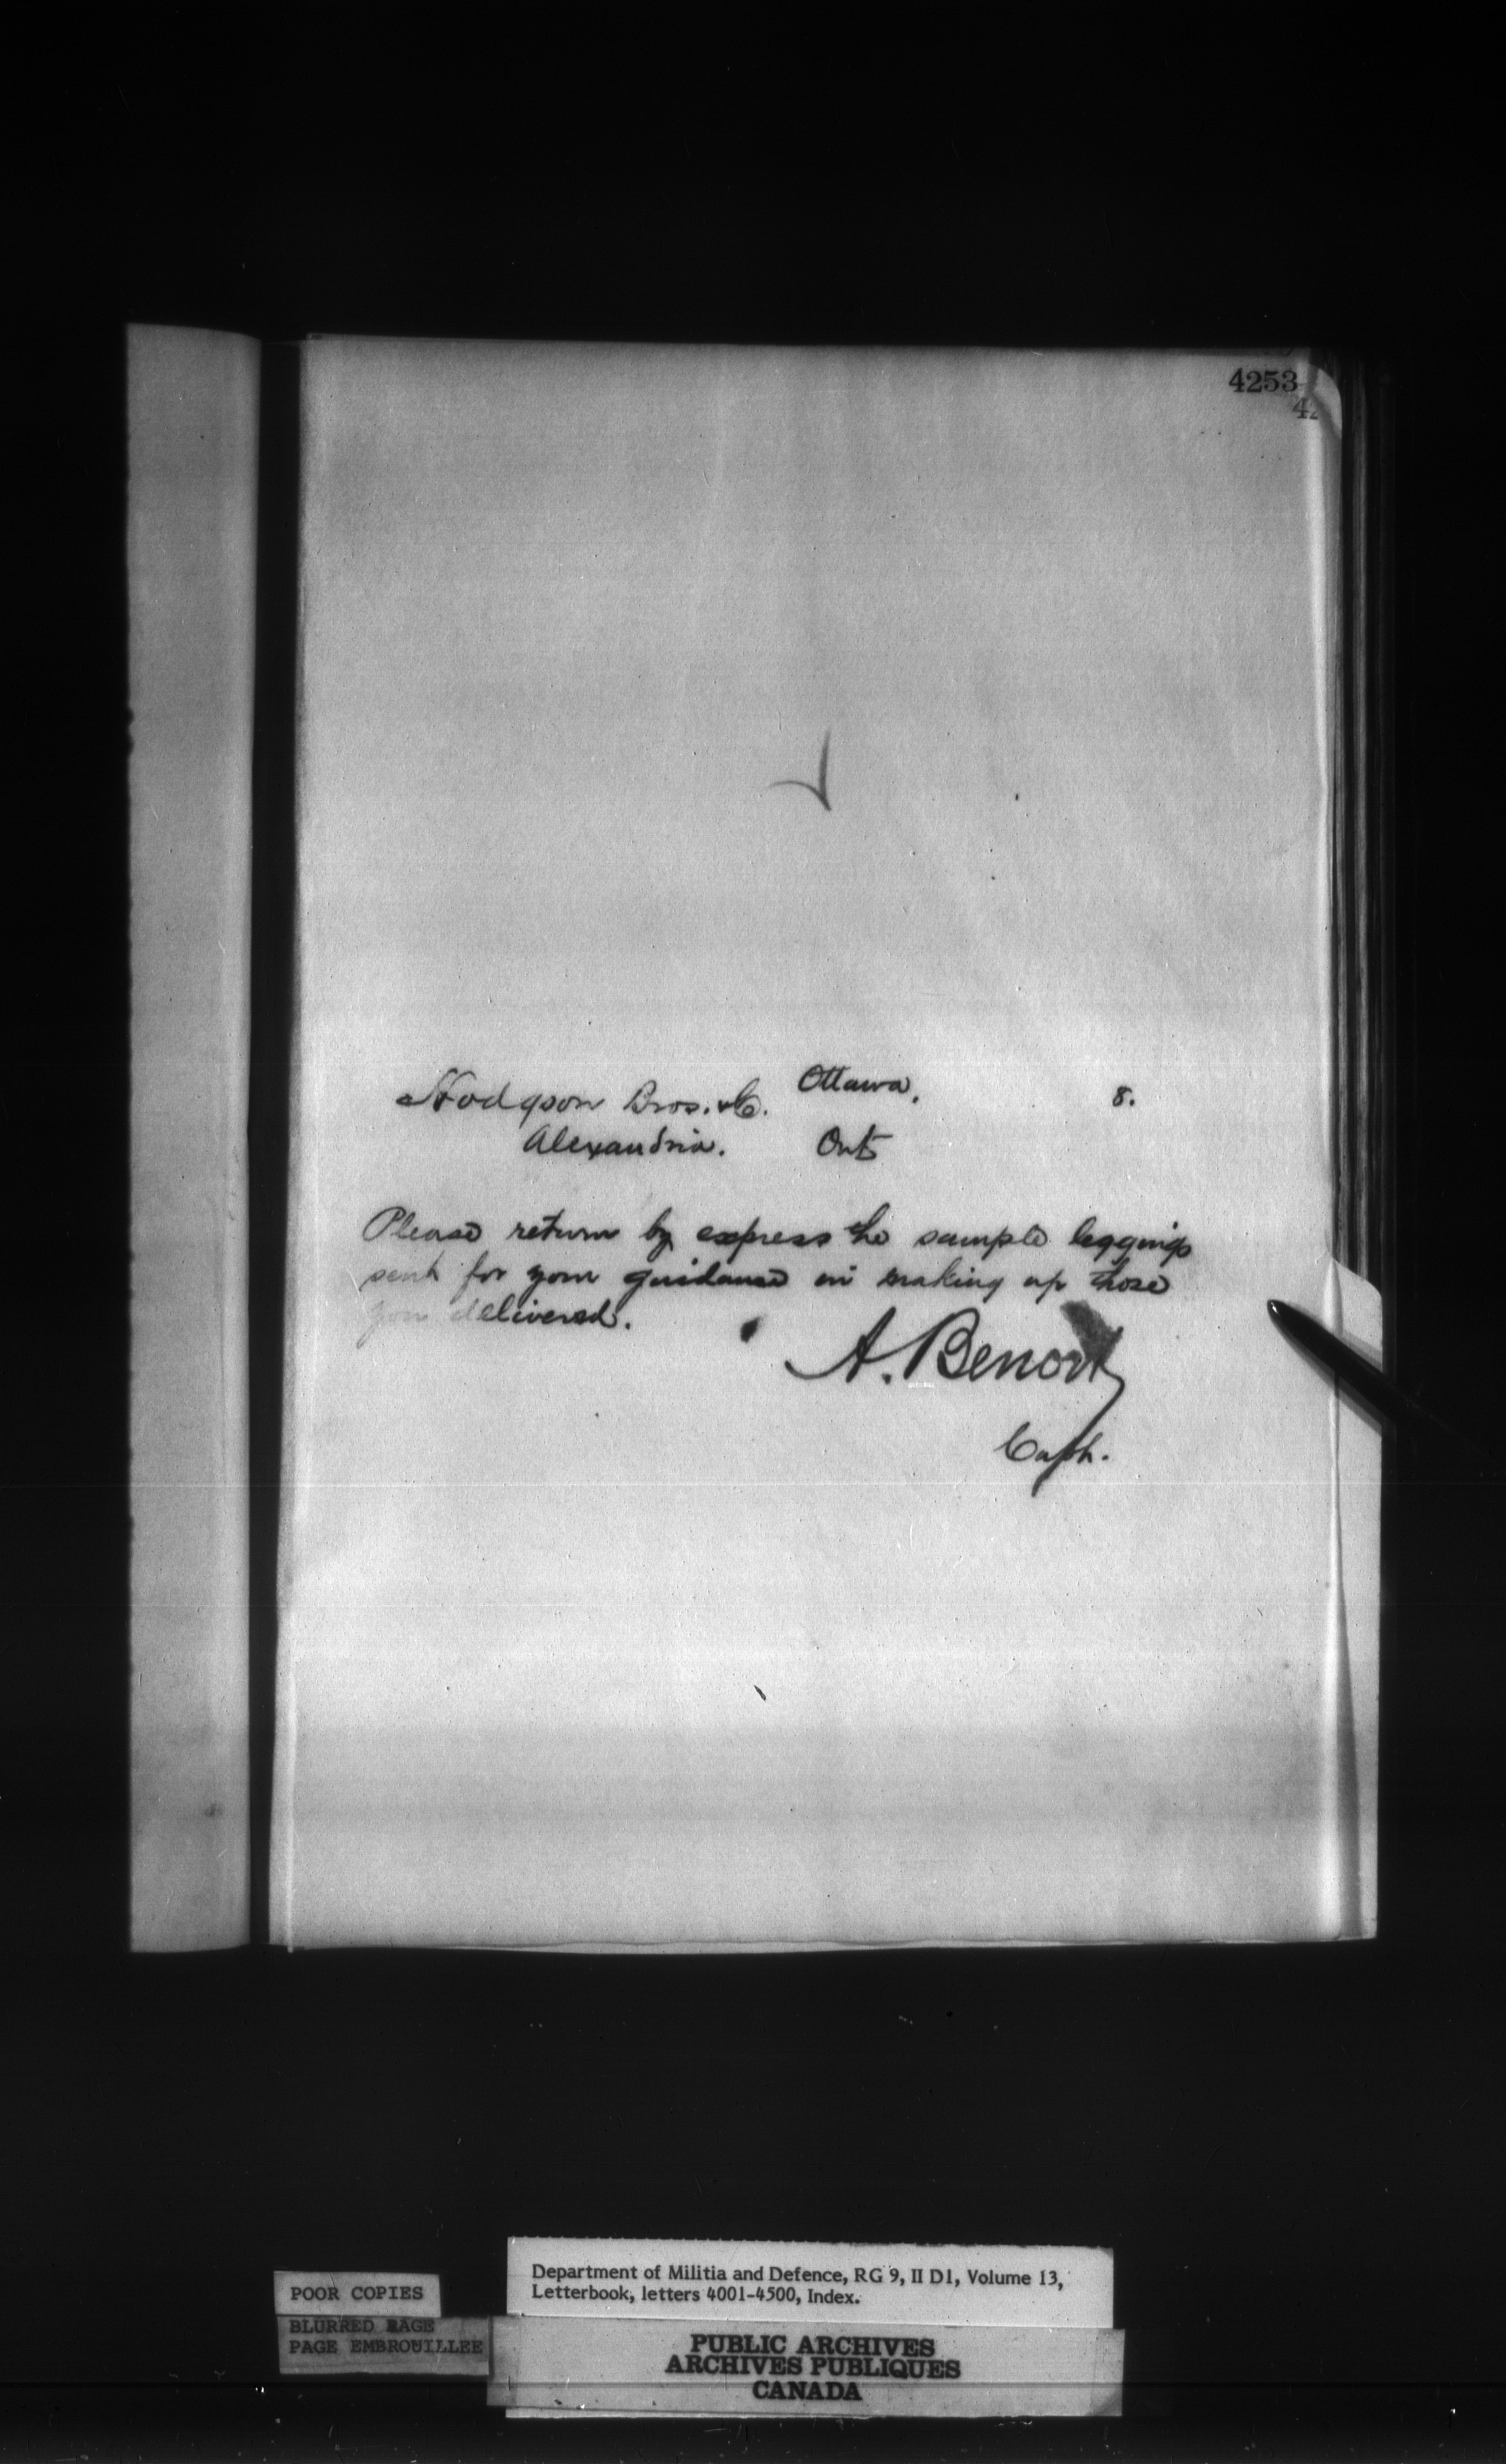 4253
42
Ottawa, 8.
Hodgson Bros. & Co.
Alexandria. Ont
Please return by express the sample leggings
sent for your guidance in making up those
you delivered.
A. Benoit
Capt.
Department of Militia and Defence, RG 9, II D1, Volume 13,
Letterbook, letters 4001-4500, Index.
POOR COPIES
BLURRED PAGE
PAGE EMBROUILLEE
PUBLIC ARCHIVES
ARCHIVES PUBLIQUES
CANADA